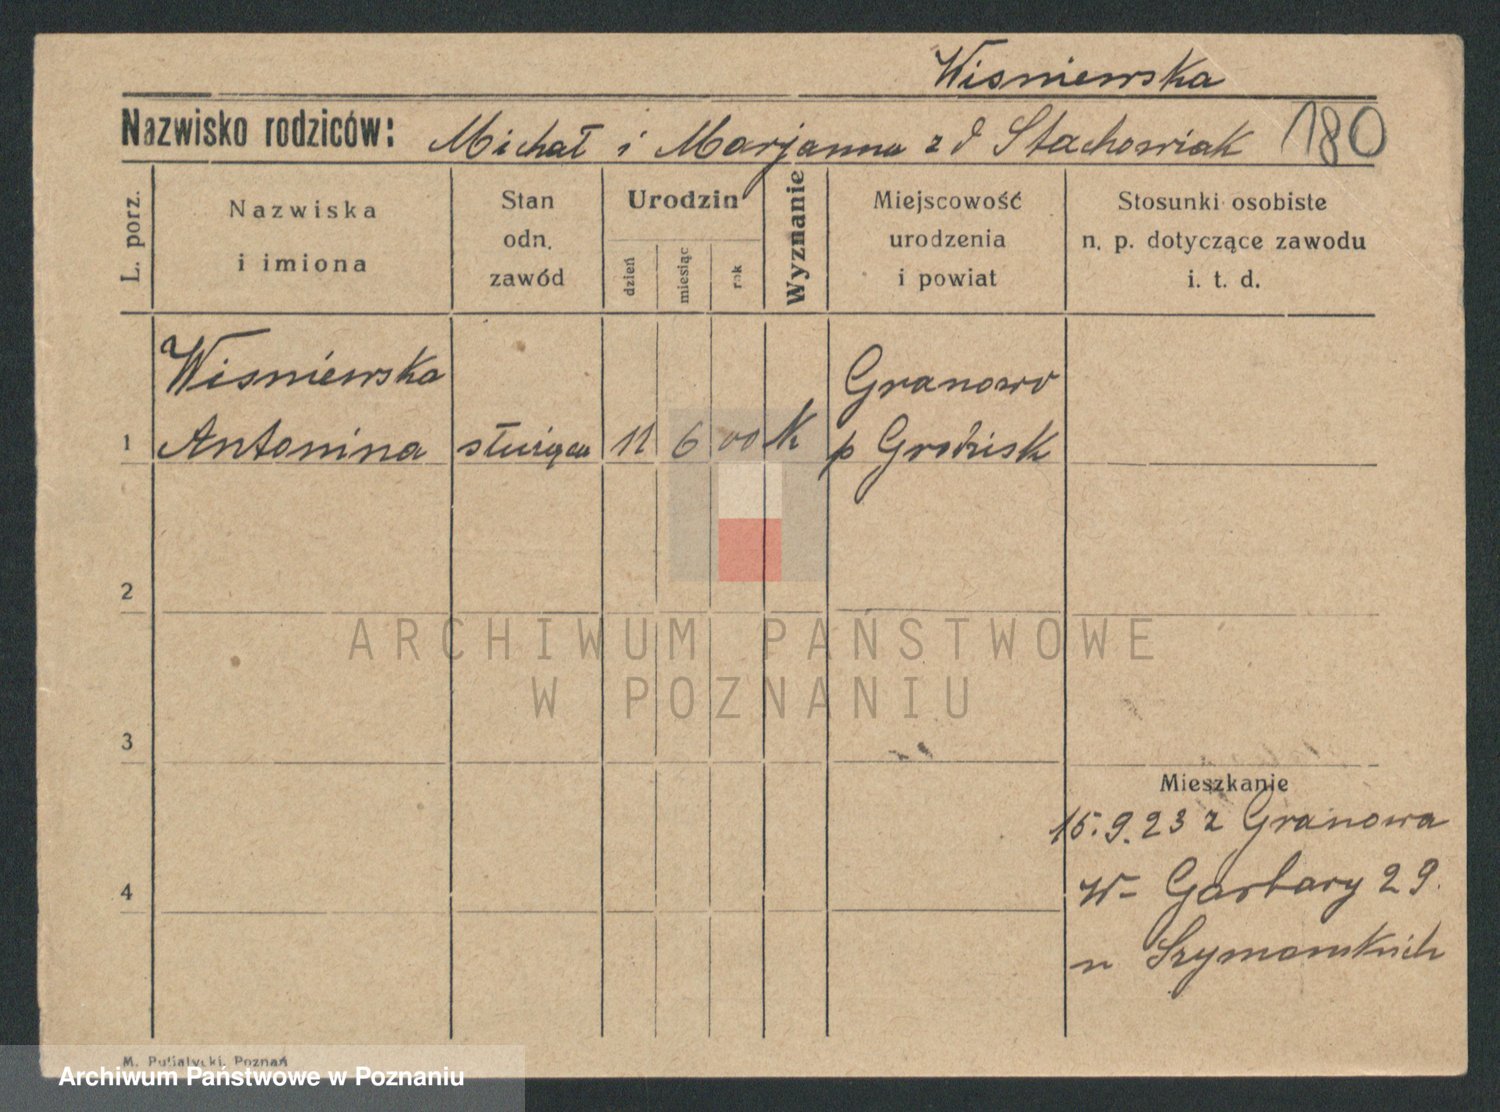 Wisniewska
Nazwisko rodziców: Michał i Marjanna z d Stachowiak 180
L. porz.
Nazwiska
i imiona
Stan
odn.
zawód
Urodzin
dzień
miesiąc
rok
Wyznanie
Miejscowość
urodzenia
i powiat
Stosunki osobiste
n. p. dotyczące zawodu
i. t. d.
1
Wisniewska
Antonina
służąca
11
6
00
K
Granowo
p Grodzisk
2
3
4
Mieszkanie
15.9.23 z Granowa
W- Garbary 29.
u Szymańskich
M. Putiatycki, Poznań
ARCHIWUM PAŃSTWOWE
W POZNANIU
Archiwum Państwowe w Poznaniu